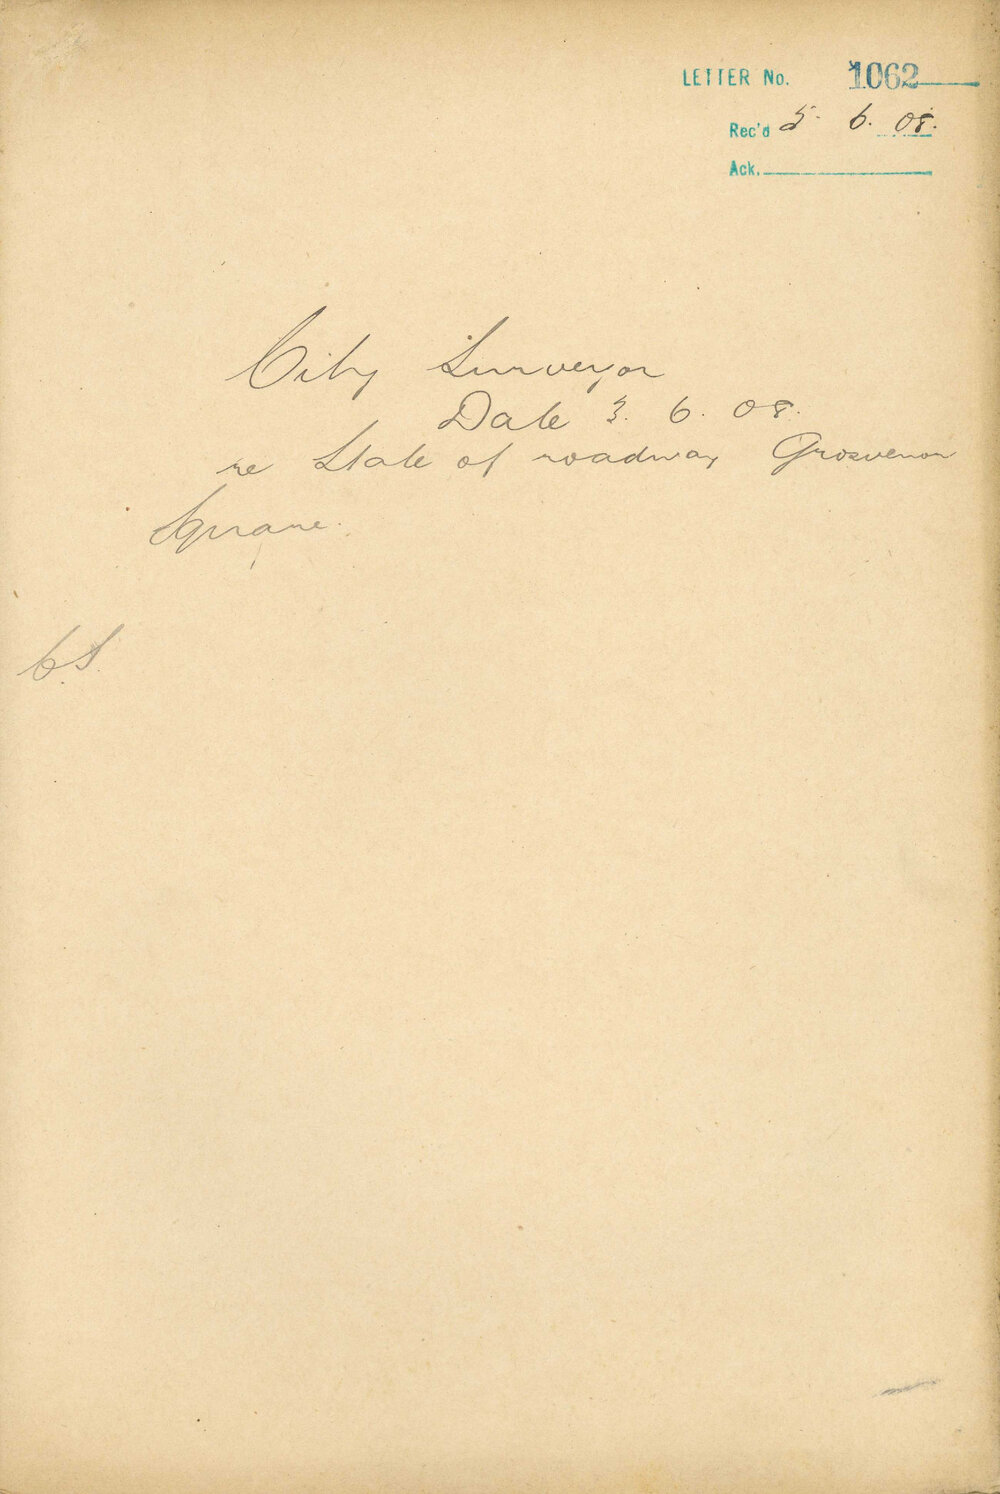 LETTER No. 1062
Rec'd 5. 6. 08.
Ack.
City Surveyor
Date 3. 6. 08.
re State of roadway Grosvenor
Square.
C.S.